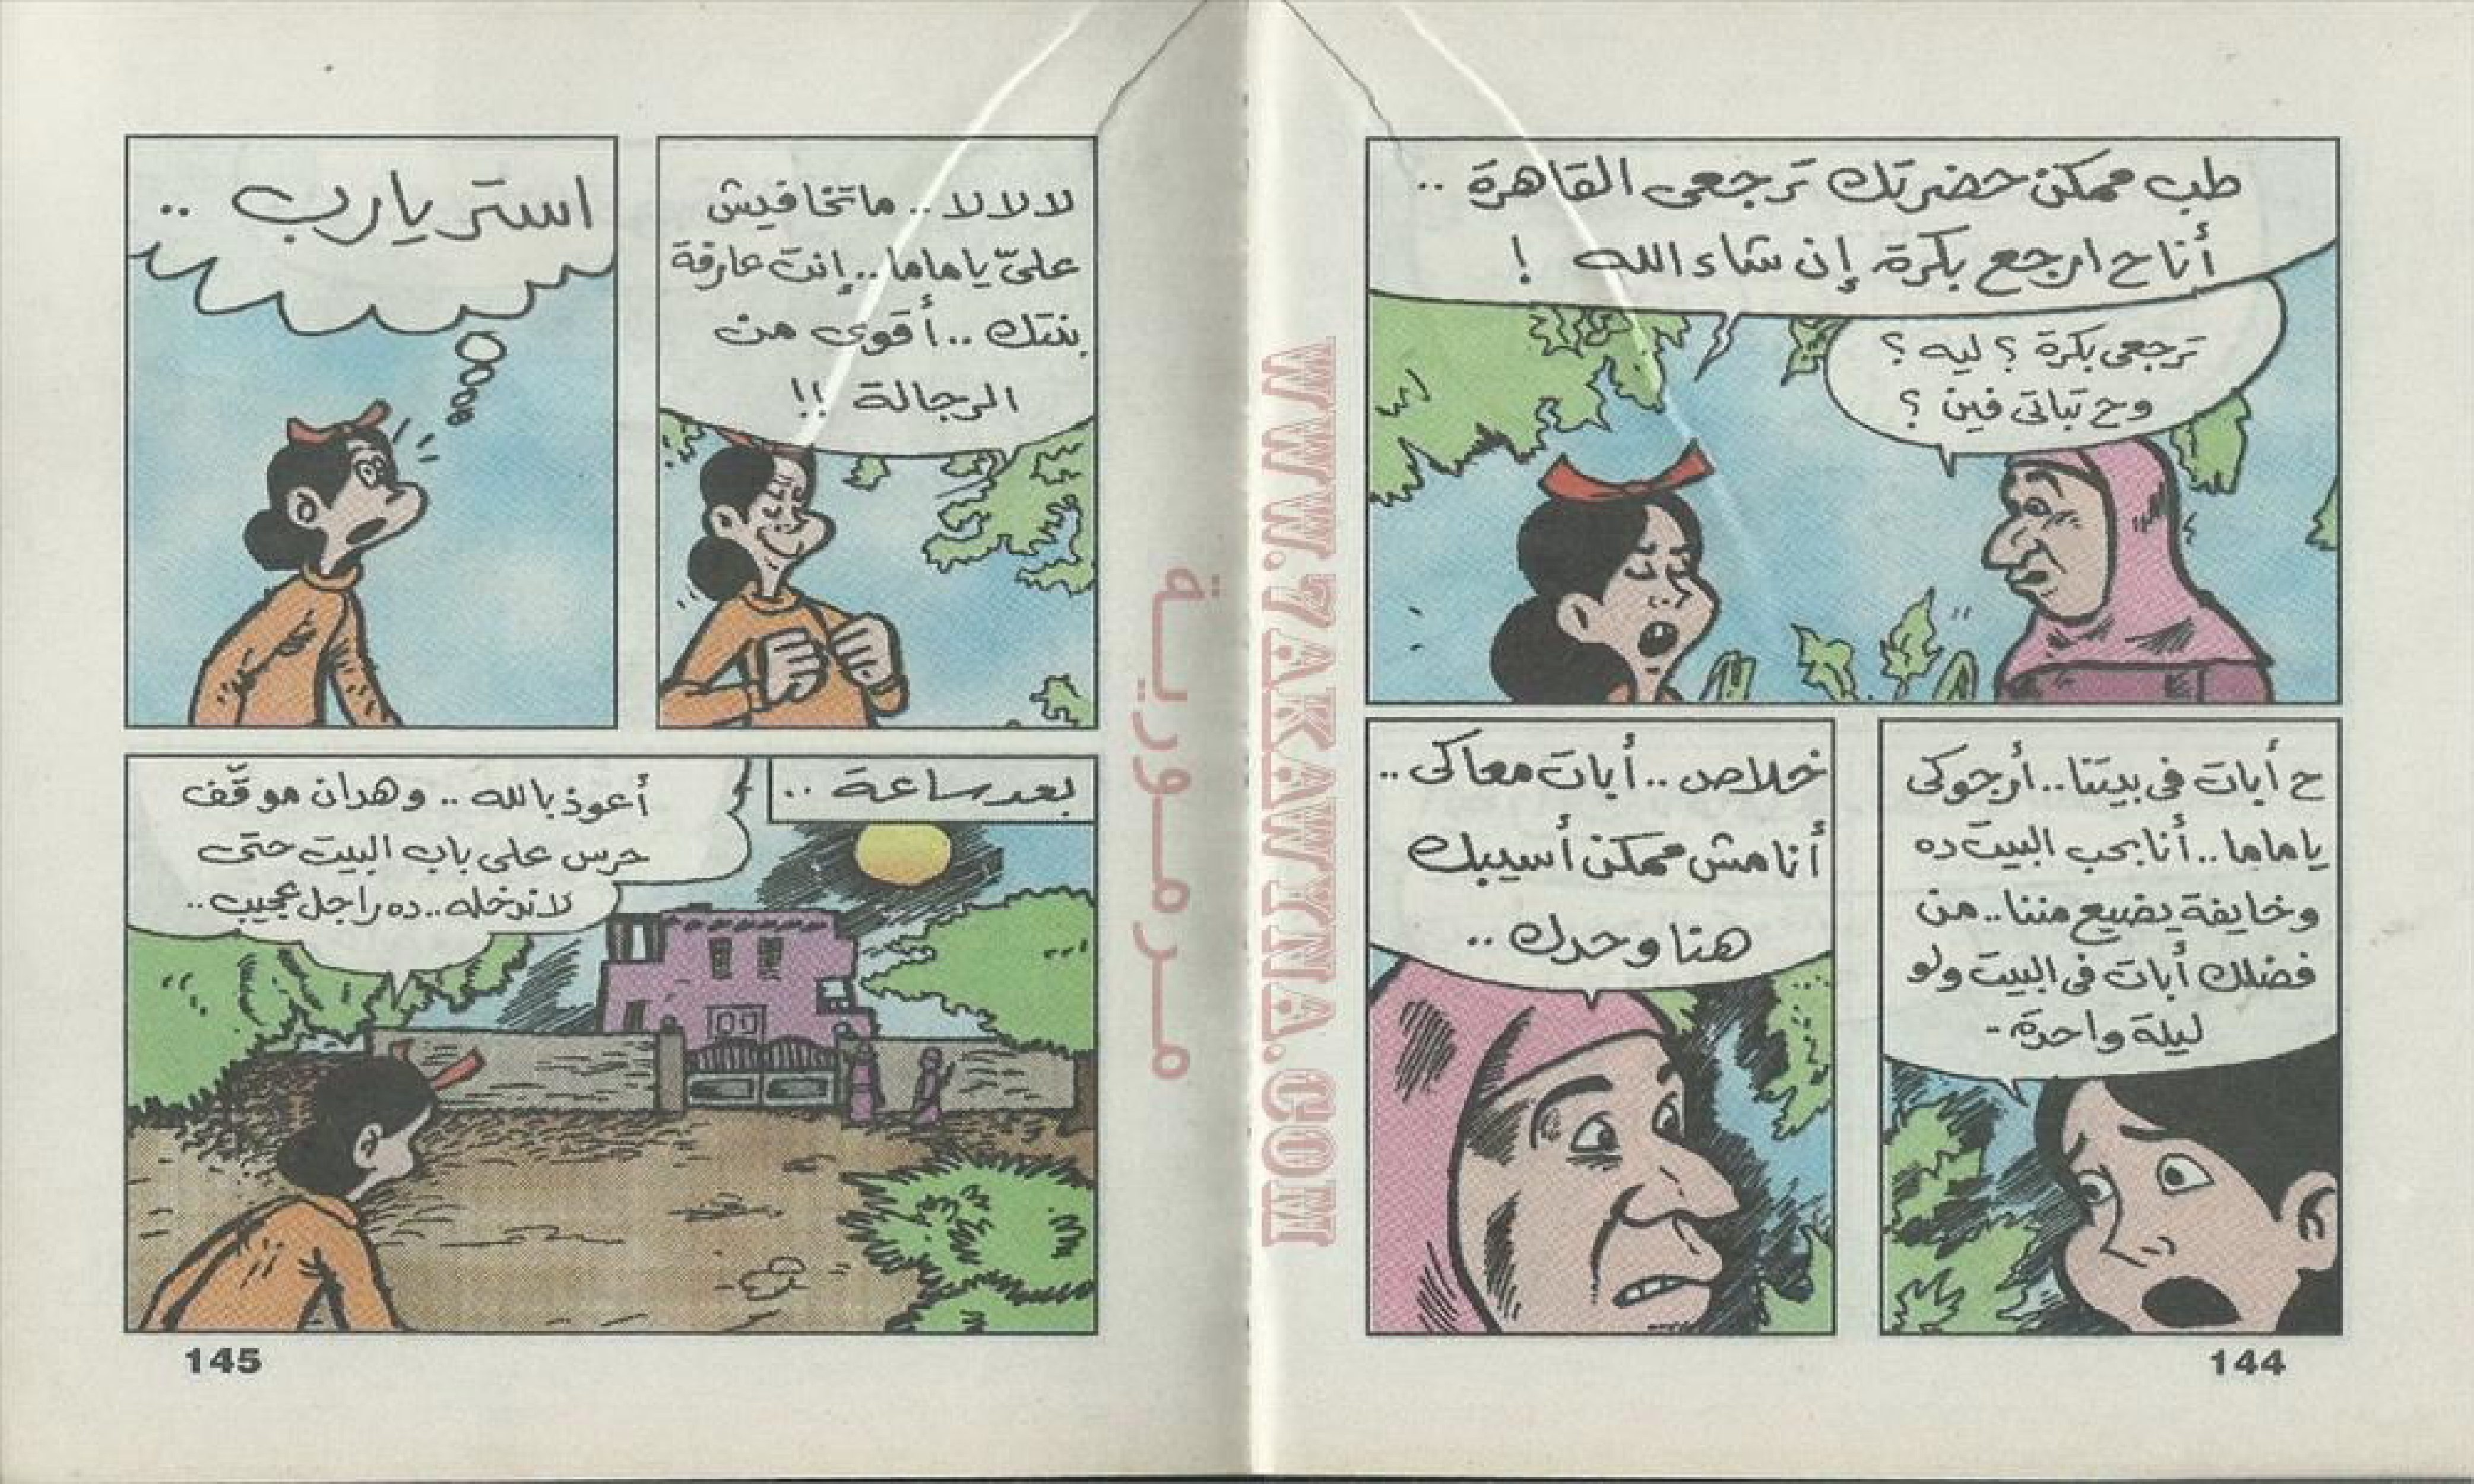 طب ممكن حضرتك ترجعى القاهرة ..
أنا ح ارجع بكرة إن شاء الله !
ترجعى بكرة ؟ ليه ؟
وح تباتى فين ؟
ح أبات فى بيتنا .. أرجوكى
ياماما .. أنا بحب البيت ده
وخايفة يضيع مننا .. من
فضلك أبات فى البيت ولو
ليلة واحدة -
خلاص .. أبات معاكى ..
أنا مش ممكن أسيبك
هنا وحدك ..
144
لا لا لا .. ماتخافيش
علىّ ياماما .. إنت عارفة
بنتك .. أقوى من
الرجالة !!
استر يارب ..
بعد ساعة ..
أعوذ بالله .. وهدان موقّف
حرس على باب البيت حتى
لاندخله .. ده راجل عجيب ..
145
مرمورية
WWW.7AKAWYNA.COM